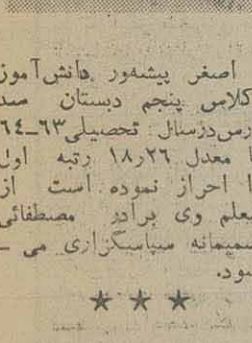 اصغر پیشه‌ور دانش‌آموز
کلاس پنجم دبستان صد
رس درسال تحصیلی ۶۳-۶٤
ا معدل ۱۸٫۲۶ رتبه اول
ا احراز نموده است از
معلم وی برادر مصطفائی
صمیمانه سپاسگزاری می -
شود.
★ ★ ★